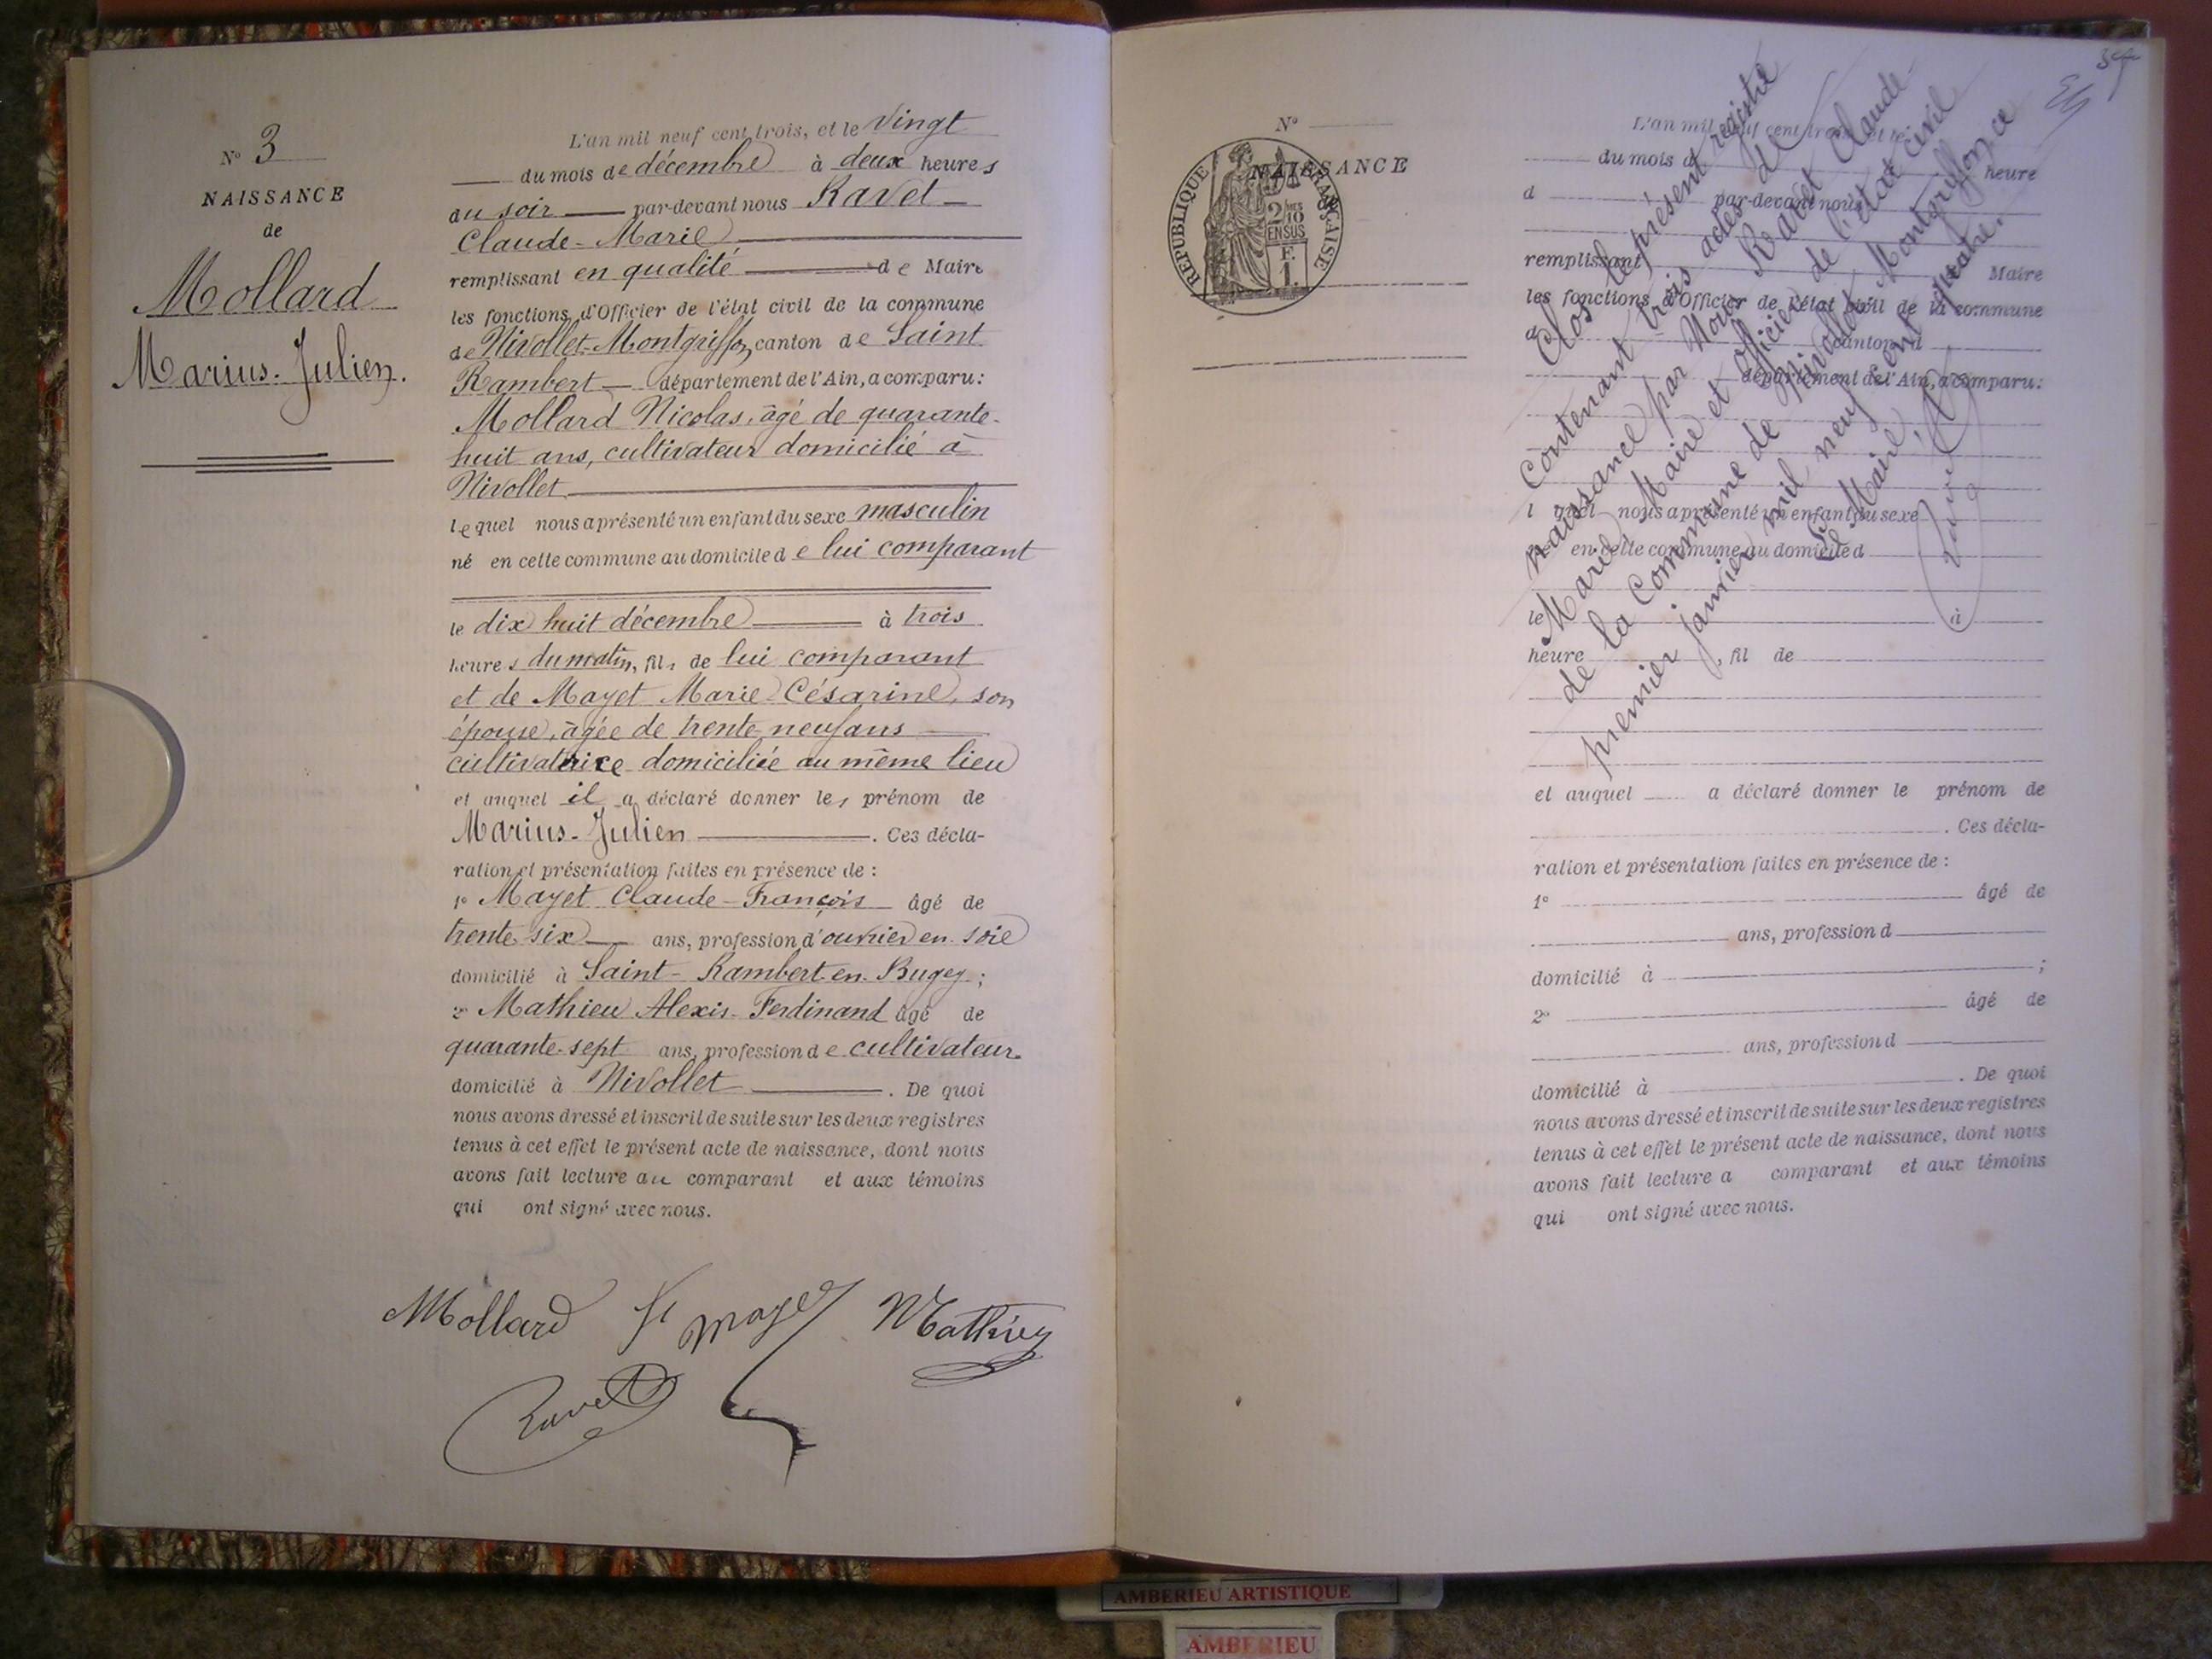 N° 3
NAISSANCE
de
Mollard
Marius-Julien.
L'an mil neuf cent trois, et le Vingt
du mois de décembre à deux heures
du soir par-devant nous Ravet
Claude-Marie
remplissant en qualité de Maire
les fonctions d'Officier de l'état civil de la commune
de Nivollet-Montgriffon, canton de Saint
Rambert département de l'Ain, a comparu:
Mollard Nicolas, âgé de quarante-
huit ans, cultivateur domicilié à
Nivollet
lequel nous a présenté un enfant du sexe masculin
né en cette commune au domicile de lui comparant
le dix huit décembre à trois
heures du matin, fils de lui comparant
et de Mayet Marie-Césarine, son
épouse, âgée de trente-neuf ans
cultivatrice domiciliée au même lieu
et auquel il a déclaré donner les prénom de
Marius-Julien. Ces décla-
ration et présentation faites en présence de :
1° Mayet Claude-François âgé de
trente-six ans, profession d'ouvrier en soie
domicilié à Saint-Rambert-en-Bugey ;
2° Mathieu Alexis-Ferdinand âgé de
quarante-sept ans, profession de cultivateur
domicilié à Nivollet. De quoi
nous avons dressé et inscrit de suite sur les deux registres
tenus à cet effet le présent acte de naissance, dont nous
avons fait lecture au comparant et aux témoins
qui ont signé avec nous.
Mollard Mayet Mathieu
Ravet
N°
NAISSANCE
RÉPUBLIQUE FRANÇAISE
2/10
EN SUS
F.
1.
L'an mil neuf cent trois, et le
du mois d
heure
d par-devant nous
remplissant Maire
les fonctions d'Officier de l'état civil de la commune
d canton d
département de l'Ain, a comparu:
l quel nous a présenté un enfant du sexe
né en cette commune au domicile d
le à
heure , fil de
et auquel a déclaré donner le prénom de
. Ces décla-
ration et présentation faites en présence de :
1° âgé de
ans, profession d
domicilié à ;
2° âgé de
ans, profession d
domicilié à . De quoi
nous avons dressé et inscrit de suite sur les deux registres
tenus à cet effet le présent acte de naissance, dont nous
avons fait lecture a comparant et aux témoins
qui ont signé avec nous.
Clos le présent registre
contenant trois actes de
naissance par Nous Ravet Claude-
Marie, Maire et officier de l'état civil
de la Commune de Nivollet-Montgriffon, ce
premier janvier mil neuf cent quatre.
Le Maire,
Ravet
AMBERIEU ARTISTIQUE
AMBERIEU